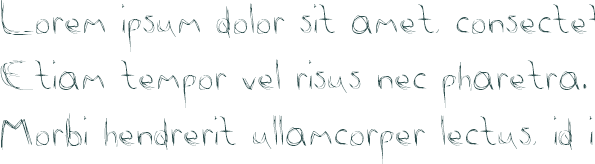 Lorem ipsum dolor sit amet, consectet
Etiam tempor vel risus nec pharetra.
Morbi hendrerit ullamcorper lectus, id i